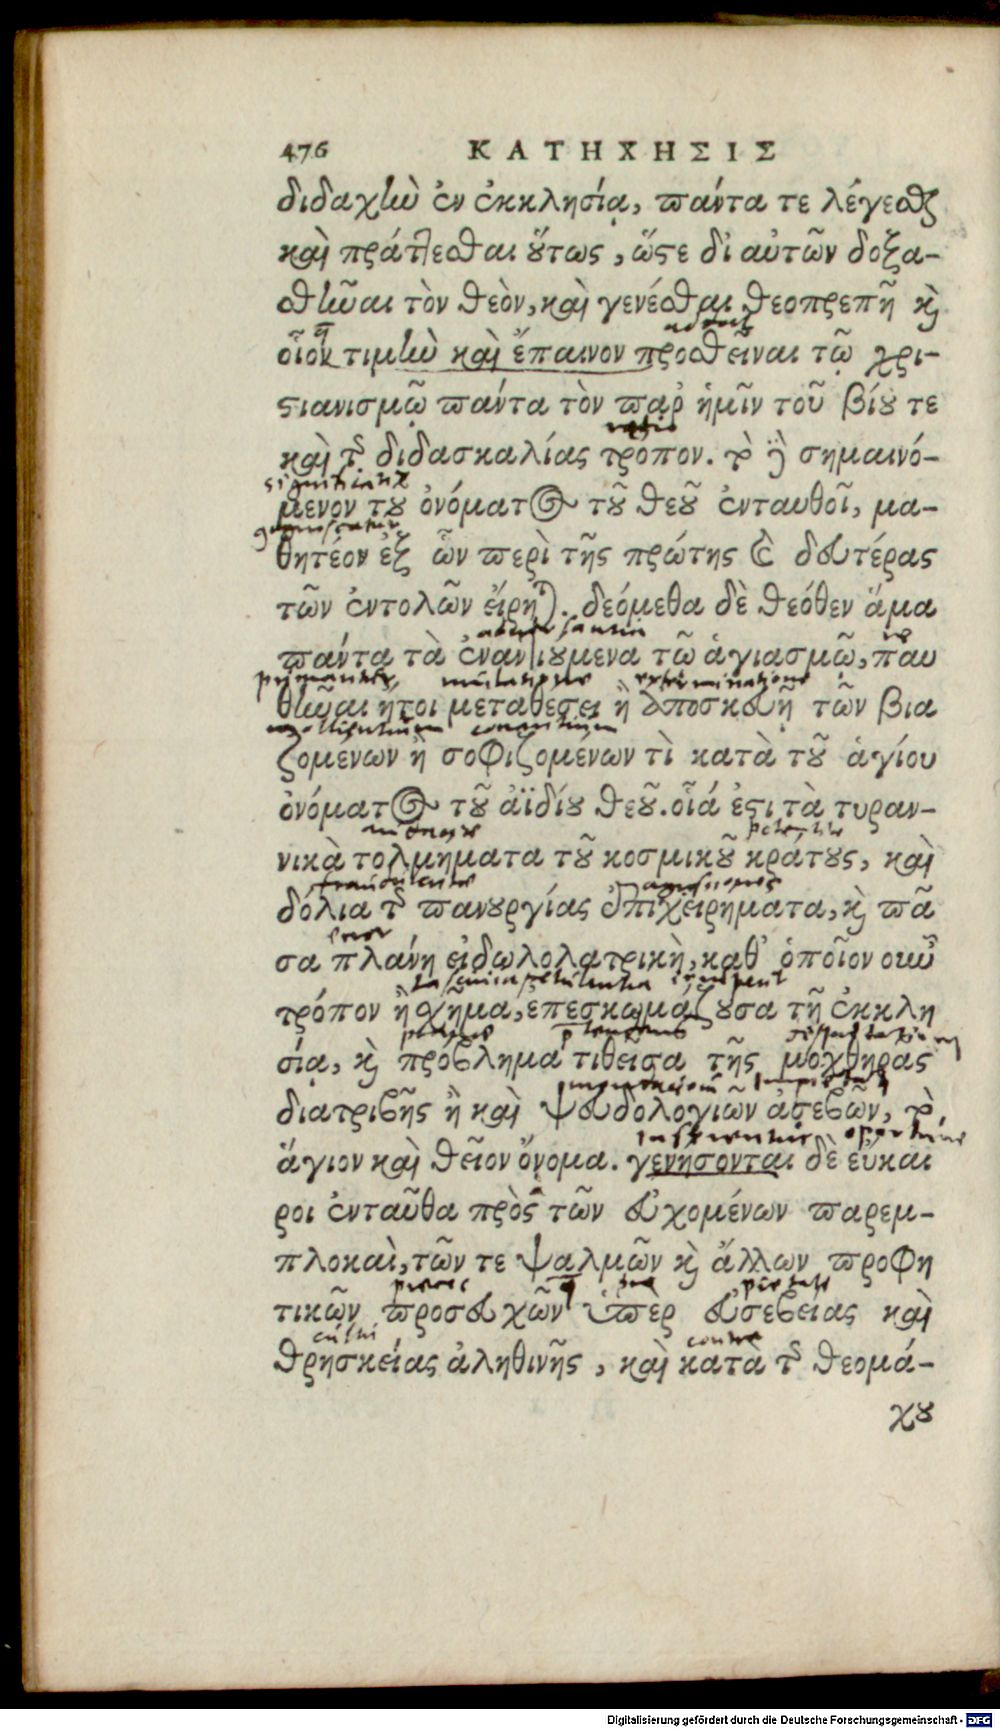 476 ΚΑΤΗΧΗΣΙΣ
διδαχὴν ἐν ἐκκλησίᾳ, πάντα τε λέγεσθαι
καὶ πράττεσθαι οὕτως, ὥστε δι αὐτῶν δοξα-
σθῆναι τὸν θεὸν, καὶ γενέσθαι θεοπρεπῆ καὶ
οἷον τιμὴν καὶ ἔπαινον προσθεῖναι τῷ χρι-
στιανισμῷ πάντα τὸν παρ ἡμῖν τοῦ βίου τε
ratio
καὶ τῆς διδασκαλίας τρόπον. τὸ δὲ σημαινό-
μενον τοῦ ὀνόματος τοῦ θεοῦ ἐνταυθοῖ, μα-
θητέον ἐξ ὧν περὶ τῆς πρώτης καὶ δευτέρας
τῶν ἐντολῶν εἴρηται. δεόμεθα δὲ θεόθεν ἅμα
πάντα τὰ ἐναντιούμενα τῷ ἁγιασμῷ, παυ
mutatione exterminatione
θῆναι ἤτοι μεταθέσει ἢ ἀποσκευῇ τῶν βια
ζομένων ἢ σοφιζομένων τὶ κατὰ τοῦ ἁγίου
ὀνόματος τοῦ ἀϊδίου θεοῦ. οἷά ἐστι τὰ τυραν-
potentiae
νικὰ τολμήματα τοῦ κοσμικοῦ κράτους, καὶ
δόλια τῆς πανουργίας ἐπιχειρήματα, καὶ πᾶ
error
σα πλάνη εἰδωλολατρικὴ, καθ᾽ ὁποῖον οὖν
τρόπον ἢ σχῆμα, ἐπεσκωμάζουσα τῇ ἐκκλη
σίᾳ, καὶ πρόβλημα τιθεῖσα τῆς μοχθηρᾶς
διατριβῆς ἢ καὶ ψευδολογιῶν ἀσεβῶν, τὸ
ἅγιον καὶ θεῖον ὄνομα. γενήσονται δὲ εὔκαι
ροι ἐνταῦθα πρὸς τῶν εὐχομένων παρεμ-
πλοκαὶ, τῶν τε ψαλμῶν καὶ ἄλλων προφη
preces pro pietate
τικῶν προσευχῶν ὑπὲρ εὐσεβείας καὶ
cultu contra
θρησκείας ἀληθινῆς, καὶ κατὰ τῆς θεομά-
χου
Digitalisierung gefördert durch die Deutsche Forschungsgemeinschaft - DFG